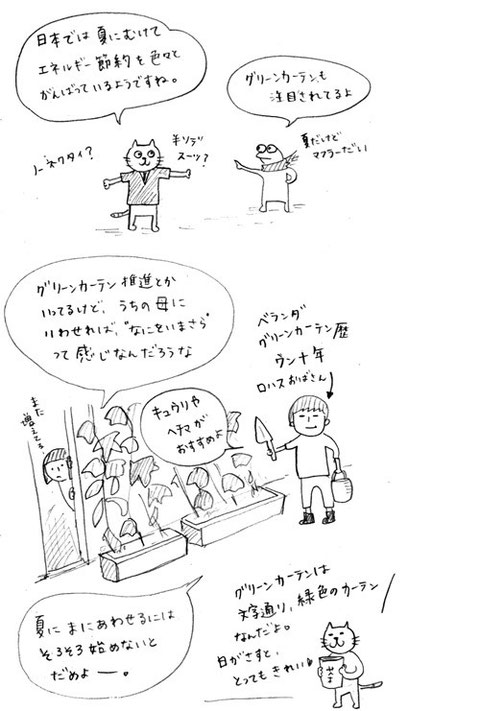 日本では夏にむけて
エネルギー節約を色々と
がんばっているようですね。
グリーンカーテンも
注目されてるよ
ノーネクタイ?
半ソデ
スーツ?
夏だけど
マフラーだい
グリーンカーテン推進とか
いってるけど、うちの母に
いわせれば、"なにをいまさら"
って感じなんだろうな
ベランダ
グリーンカーテン歴
ウン十年
ロハスおばさん
キュウリや
ヘチマが
おすすめよ
また
増えてる
夏にまにあわせるには
そろそろ始めないと
だめよー。
グリーンカーテンは
文字通り、緑色のカーテン
なんだよ。
日がさすと、
とってもきれい